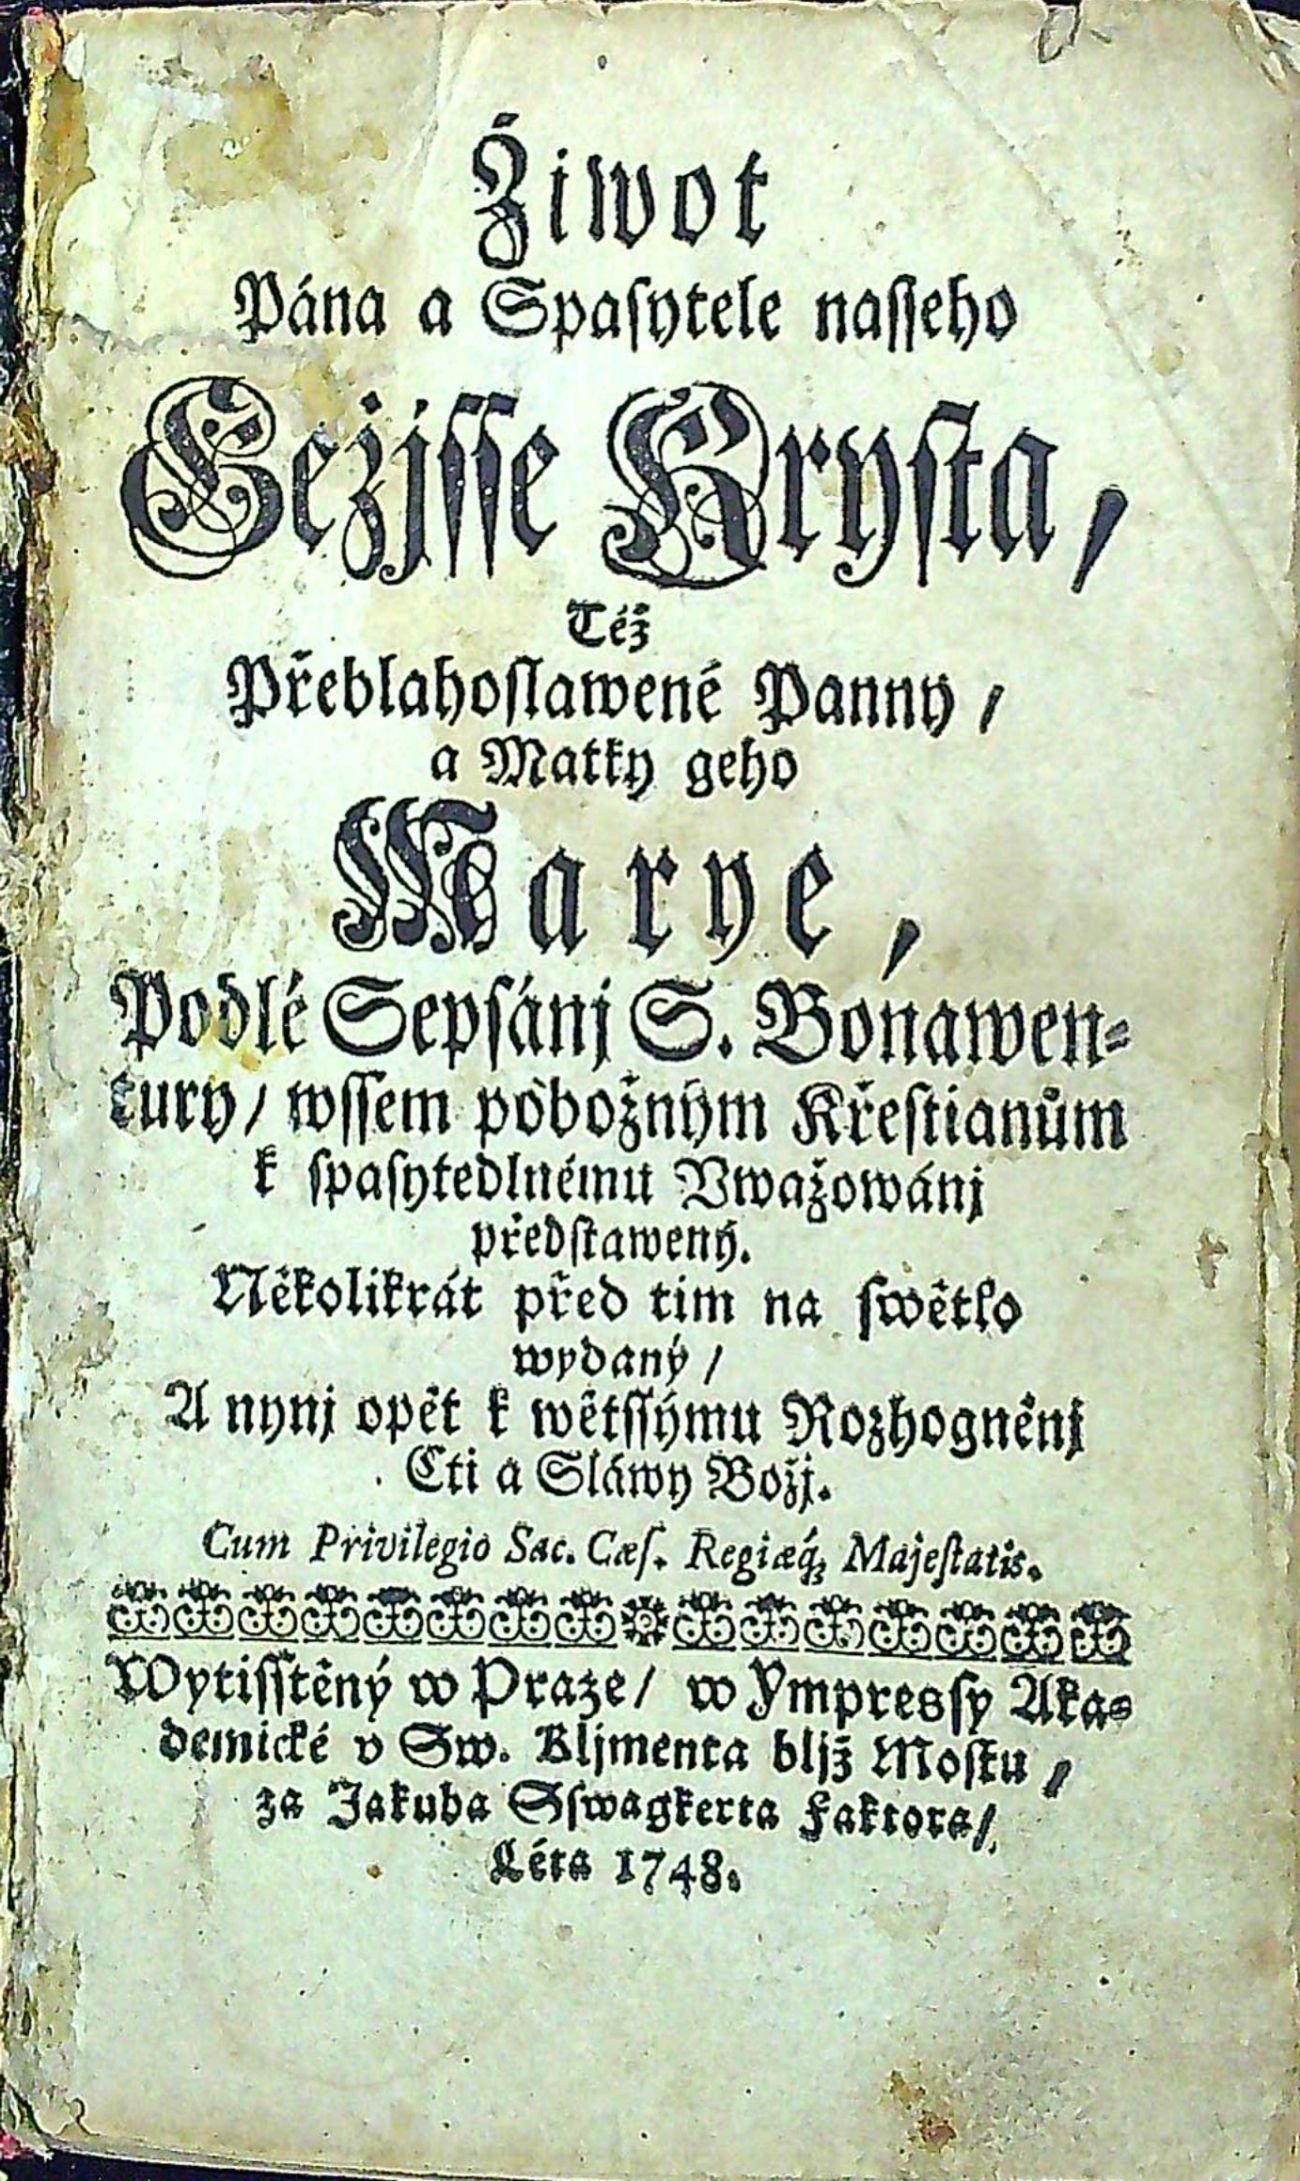 Žiwot
Pána a Spaſytele naſſeho
Gežjſſe Kryſta,
Též
Přeblahoſlawené Panny /
a Matky geho
Marye,
Podlé Sepſánj S. Bonawen⸗
tury / wſſem pobožným Křeſtianům
k ſpaſytedlnému Vwažowánj
předſtawený.
Několikrát před tim na ſwětlo
wydaný /
A nynj opět k wětſſýmu Rozhogněnj
Cti a Sláwy Božj.
Cum Privilegio Sac. Cæſ. Regiæq́; Majeſtatis.
Wytiſſtěný w Praze / w Ympreſſy Aka⸗
demické v Sw. Kljmenta bljž Moſtu,
za Jakuba Sſwagkerta Faktora /
Léta 1748.